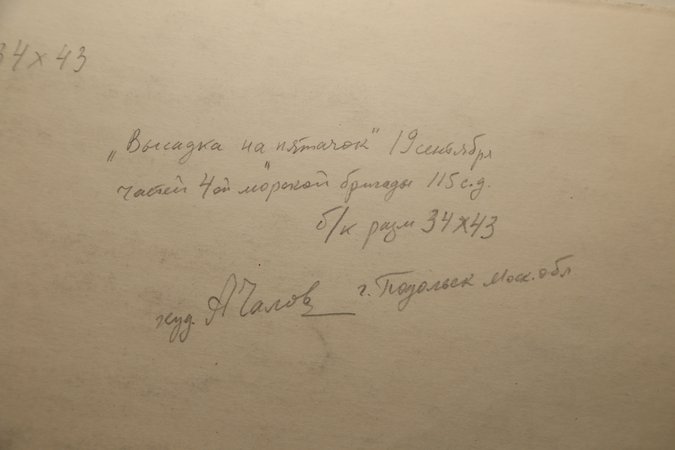 34х43
„Высадка на пятачок" 19 сентября
частей 4ой морской бригады 115 с.д.
б/к разм 34х43
худ. АЧалов г. Подольск Моск. обл